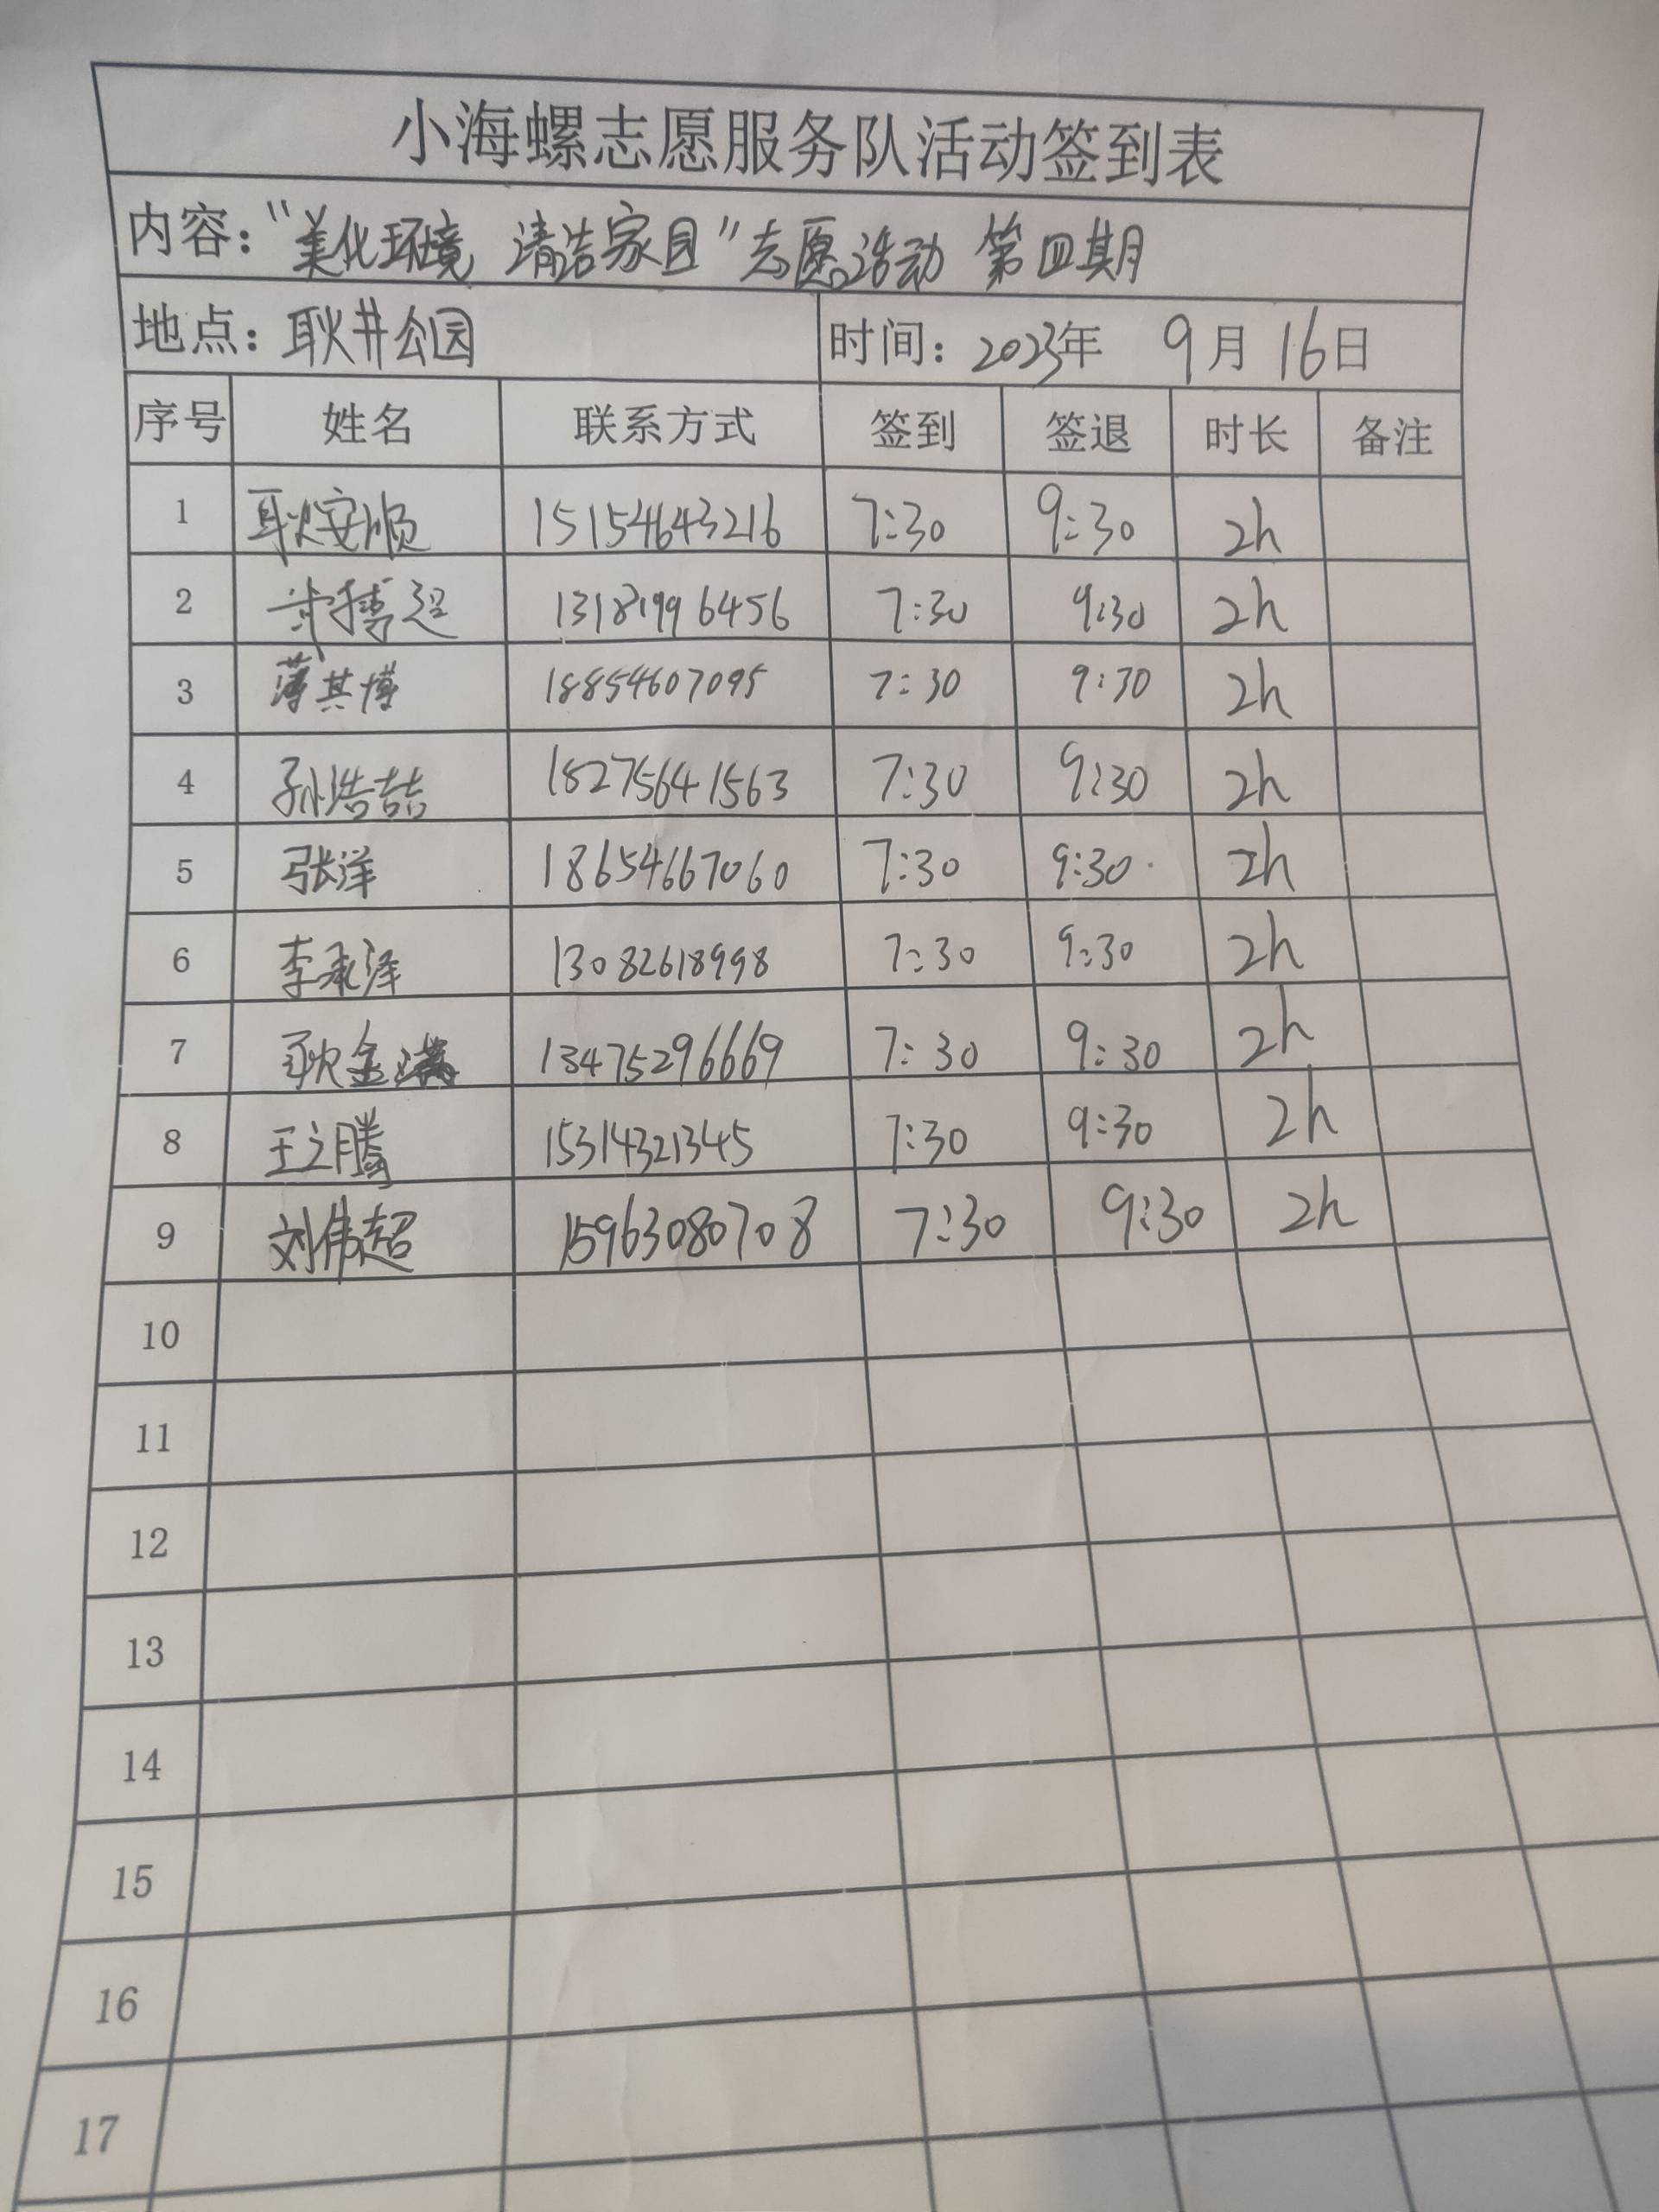 小海螺志愿服务队活动签到表
内容：“美化环境 清洁家园”志愿活动 第四期
地点：耿井公园 时间：2023年 9月16日
序号 姓名 联系方式 签到 签退 时长 备注
1 耿安顺 15154643216 7:30 9:30 2h
2 博超 13181996456 7:30 9:30 2h
3 薄其博 18854607095 7:30 9:30 2h
4 孙浩喆 18275641563 7:30 9:30 2h
5 张洋 18654667060 7:30 9:30 2h
6 李承泽 13082618998 7:30 9:30 2h
7 耿金 13475296669 7:30 9:30 2h
8 王之腾 15314321345 7:30 9:30 2h
9 刘伟超 15963080708 7:30 9:30 2h
10
11
12
13
14
15
16
17